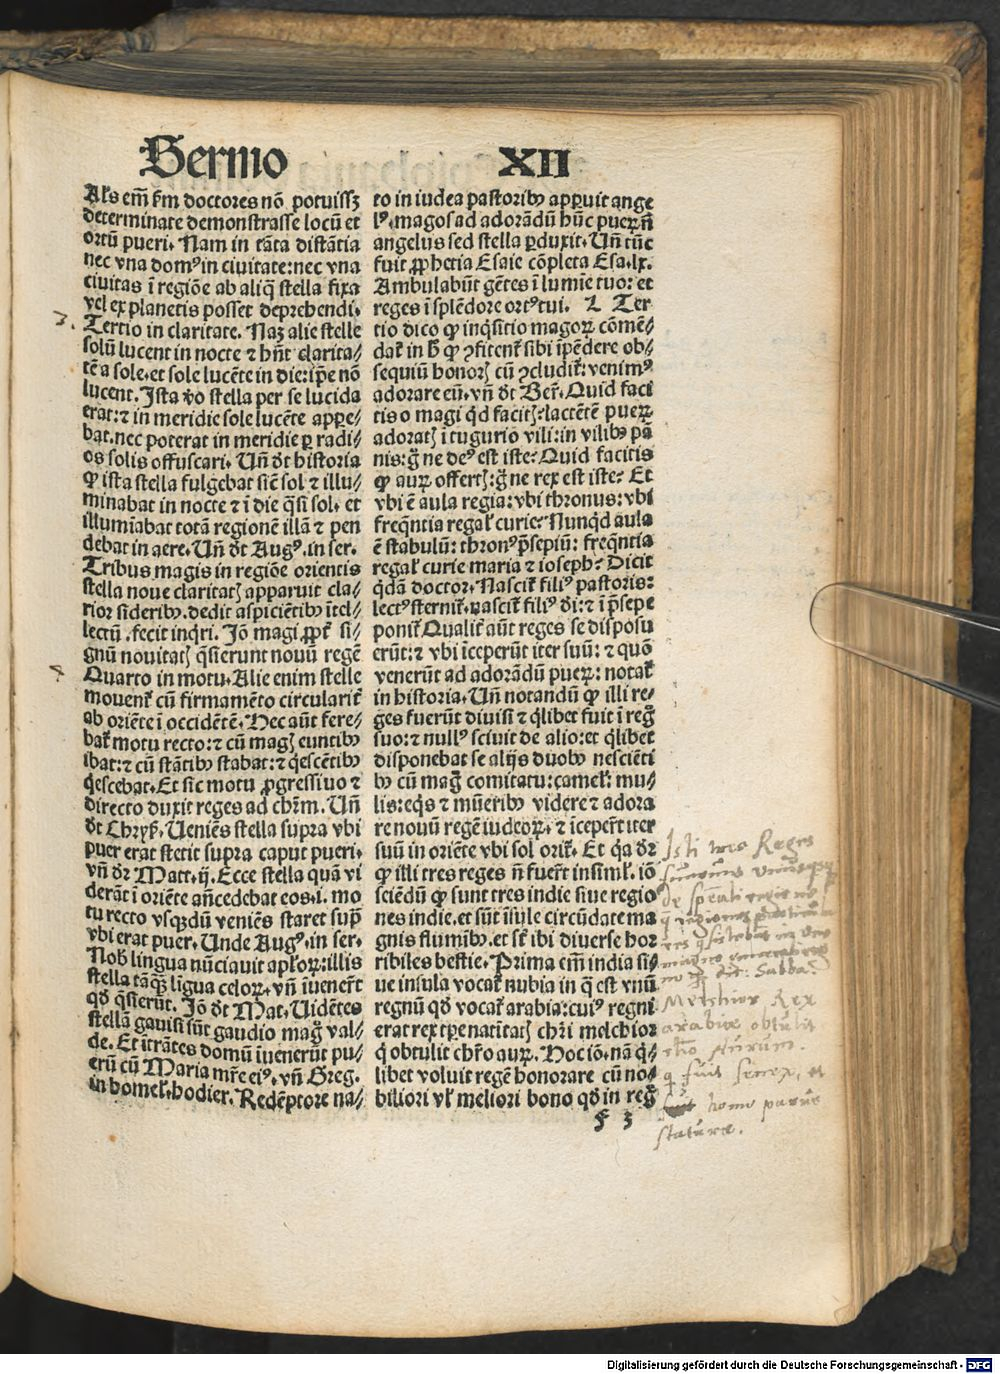 Sermo XII
Als em̄ ẜm doctores nō potuissꝫ
determinate demonstrasse locū et
ortū pueri. Nam in tāta distātia
nec vna domꝰ in ciuitate: nec vna
ciuitas ī regiōe ab aliq̄ stella fixa
vel ex planetis posset deprehendi.
3. Tertio in claritate. Naꝫ alie stelle
solū lucent in nocte ⁊ hn̄t clarita⸗
tē a sole. et sole lucēte in die: ip̄e nō
lucent. Ista v̄o stella per se lucida
erat: ⁊ in meridie sole lucēte appe⸗
bat. nec poterat in meridie ꝑ radi⸗
os solis offuscari. Vn̄ dt̄ historia
ꝙ ista stella fulgebat sic̄ sol ⁊ illu⸗
minabat in nocte ⁊ ī die q̄si sol. et
illumīabat totā regionē illā ⁊ pen
debat in aere. Vn̄ dt̄ Augꝰ. in ser.
Tribus magis in regiōe orientis
stella noue claritatꝭ apparuit cla⸗
rior sideribꝰ. dedit aspiciētibꝰ ītel⸗
lectū. fecit inq̄ri. Jō magi ꝓpt̄ si⸗
gnū nouitatꝭ q̄sierunt nouū regē
4 Quarto in motu. Alie enim stelle
mouenť cū firmamēto circulariť
ab oriēte ī occidētē. Hec aūt fere⸗
bať motu recto: ⁊ cū magꝭ euntibꝰ
ibat: ⁊ cū stātibꝰ stabat: ⁊ q̇escētibꝰ
q̇escebat. Et sic motu ꝓgressiuo ⁊
directo duxit reges ad chr̄m. Vn̄
dt̄ Chryẜ. Veniēs stella supra vbi
puer erat stetit supra caput pueri.
vn̄ dr̄ Matt. ij. Ecce stella quā vi
derāt ī oriēte an̄cedebat eos. i. mo
tu recto vsq̄ꝫdū veniēs staret sup̄
vbi erat puer. Unde Augꝰ. in ser.
Nob̄ lingua nūciauit apl̄oꝝ: illis
stella tāq̄ꝫ līgua celoꝝ. vn̄ īuener̄t
qd̄ q̄sierūt. Jō dt̄ Mat. Uidētes
stellā gauisi sūt gaudio maḡ val⸗
de. Et ītrātes domū iuenerūt pu⸗
erū cū Maria mr̄e eiꝰ. vn̄ Greg.
in homel̄. hodier. Redēptore na⸗
to in iudea pastoribꝰ apꝑuit ange
lꝰ. magos ad adorādū hūc pueꝝ n̄
angelus sed stella ꝑduxit. Un̄ tūc
fuit ꝓphetia Esaie cōpleta Esa. lx.
Ambulabūt gētes ī lumīe tuo: et
reges ī splēdore ortꝰ tui. ⁊ Ter⸗
tio dico ꝙ inq̇sitio magoꝝ cōmē⸗
daẗ in h̄ ꝙ ꝯfitenť sibi īpēdere ob⸗
sequiū honorꝭ cū ꝯcludiť: venimꝰ
adorare eū. vn̄ dt̄ Ber̄. Quid faci
tis o magi qd̄ facitꝭ? lactētē pueꝝ
adoratꝭ ī tugurio vili: in vilibꝰ pā
nis: g̊ ne deꝰ est iste? Quid facitis
ꝙ auꝝ offertꝭ: g̊ ne rex est iste? Et
vbi ē aula regia: vbi thronus: vbi
freq̄ntia regal̄ curie? Nunqd̄ aula
ē stabulū: thronꝰ p̄sepiū: freq̄ntia
regal̄ curie maria ⁊ ioseph? Dicit
q̇dā doctor. Nasciť filiꝰ pastoris:
lectꝰ sterniť. nasciť filiꝰ di: ⁊ ī p̄sepe
poniť Qualiť aūt reges se disposu
erūt: ⁊ vbi īceperūt iter suū: ⁊ quō
venerūt ad adorādū pueꝝ: notať
in historia. Un̄ notandū ꝙ illi re⸗
ges fuerūt diuisi ⁊ q̇libet fuit ī reg̊
suo: ⁊ nullꝰ sciuit de alio: et q̇libet
disponebat se alijs duobꝰ nesciēti
bꝰ cū mag̊ comitatu: camel̄: mu⸗
lis: eq̇s ⁊ mūeribꝰ videre ⁊ adora
re nouū regē iudeoꝝ. ⁊ īceper̄t iter
suū in oriēte vbi sol oriť. Et q̇a dr̄
ꝙ illi tres reges n̄ fuer̄t insiml̄. iō
sciēdū ꝙ sunt tres indie siue regio⸗
nes indie. et sūt īsule circūdate ma
gnis flumībꝰ. et sť ibi diuerse hor
ribiles bestie. Prima em̄ india si⸗
ue insula vocať nubia in q̄ est vnū
regnū qd̄ vocať arabia: cuiꝰ regni
erat rex tꝑe natitatꝭ chr̄i melchior
q̇ obtulit chr̄o auꝝ. Hoc iō. nā q̇⸗
libet voluit regē honorare cū no⸗
biliori vl̄ meliori bono qd̄ in reg̊
f 3
Isti tres Reges
Melchior Rex
arabiae obtulit
Aurum.
q fuit senex, et
homo parvus
staturae.
Digitalisierung gefördert durch die Deutsche Forschungsgemeinschaft - DFG